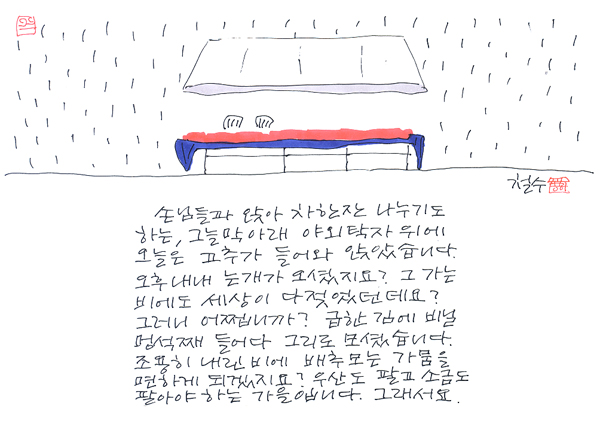 철수
손님들과 앉아 차한잔 나누기도
하는, 그늘막아래 야외탁자 위에
오늘은 고추가 들어와 앉았습니다.
오후내내 는개가 오셨지요? 그 가는
비에도 세상이 다젖었던데요?
그러니 어쩝니까? 급한 김에 비닐
멍석째 들어다 그리로 모셨습니다.
조용히 내린 비에 배추모는 가뭄을
면하게 되겠지요? 우산도 팔고 소금도
팔아야 하는 가을입니다. 그래서요.